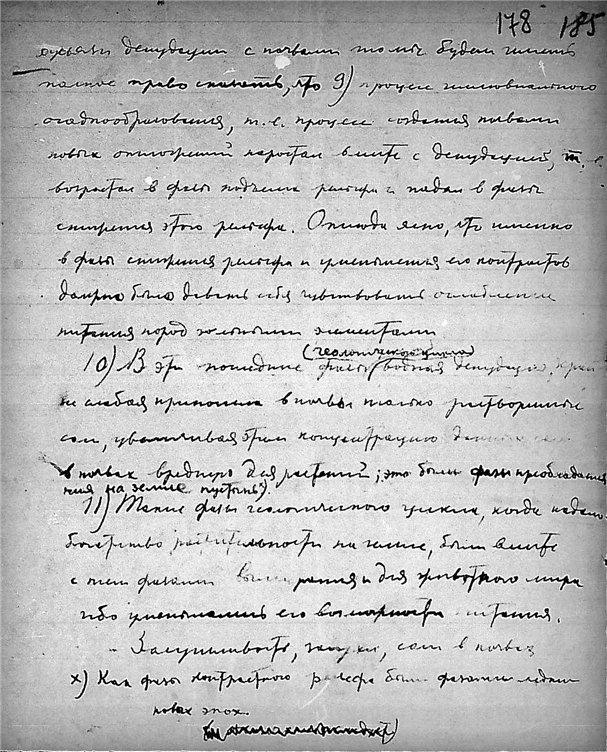 178 185
денудации с почвами мы будем иметь
полное право сказать, что 9) процесс иллювиального
осадкообразования, т.е. процесс создания нивами
новых отложений нарастал вместе с денудацией, т.е.
возрастал в фазы поднятия рельефа и падал в фазы
смирения этого рельефа. Отсюда ясно, что именно
в фазы смирения рельефа и уменьшения его контрастов
должно было давать себя чувствовать ослабление
питания пород зольными элементами
(геологического цикла)
10) В эти последние фазы водная денудация, крайне
слабая приносила в почвы только растворимые
соли, увеличивая этим концентрацию
в почвах вредную для растений; это были фазы преобладания
на земле пустынь x).
11) Такие фазы геологического цикла, когда падало
богатство растительности на земле, были вместе
с тем фазами вымирания и для животного мира
ибо уменьшались его возможности питания.
Засушливость, засухи, соли в почвах
x) Как фазы контрастного рельефа были фазами ледни
ковых эпох.